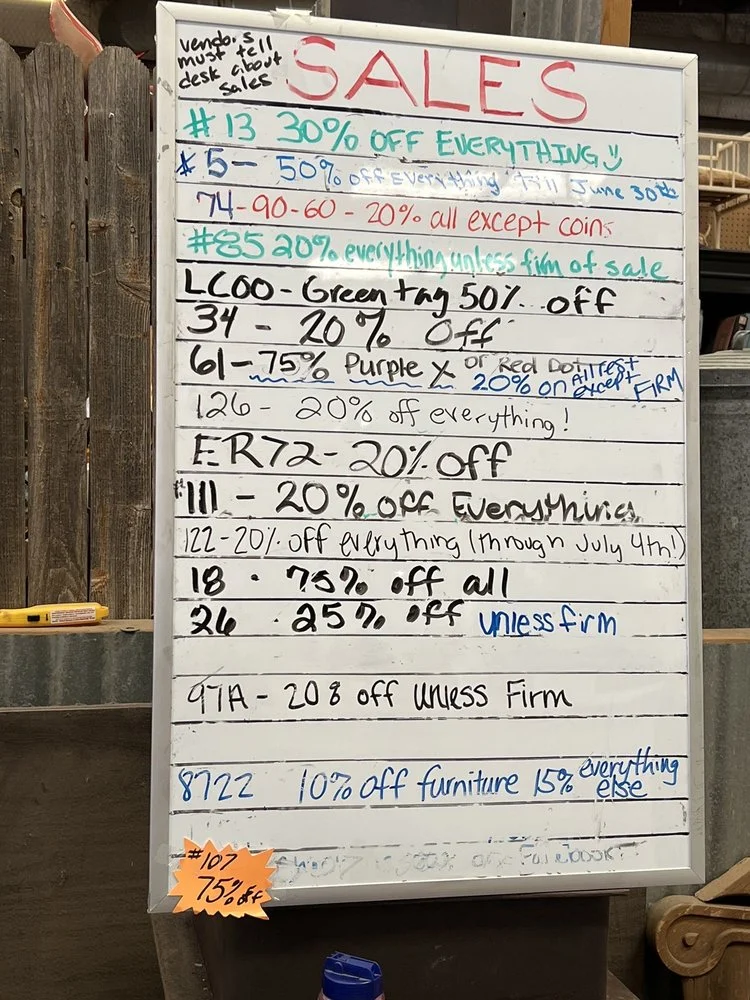 vendors
must tell
desk about
sales
SALES
#13 30% OFF EVERYTHING
#5- 50% off Everything till June 30th
74-90-60 - 20% all except coins
#85 20% everything unless firm of sale
LC00 - Green tag 50% off
34 - 20% Off
61 - 75% Purple X or Red Dot 20% on All rest except FIRM
126 - 20% off everything!
ER72 - 20% off
#111 - 20% off Everything
122-20% off everything (through July 4th!)
18 . 75% off all
26 . 25% off unless firm
97A - 20% off unless Firm
8722 10% off furniture 15% everything else
#107
75% off